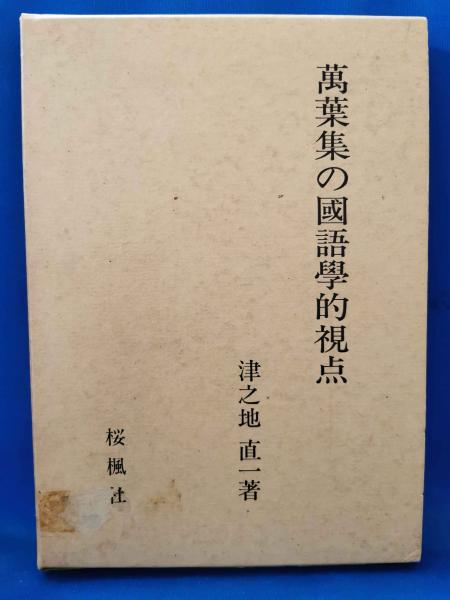 萬葉集の國語學的視点
津之地 直一著
桜楓社